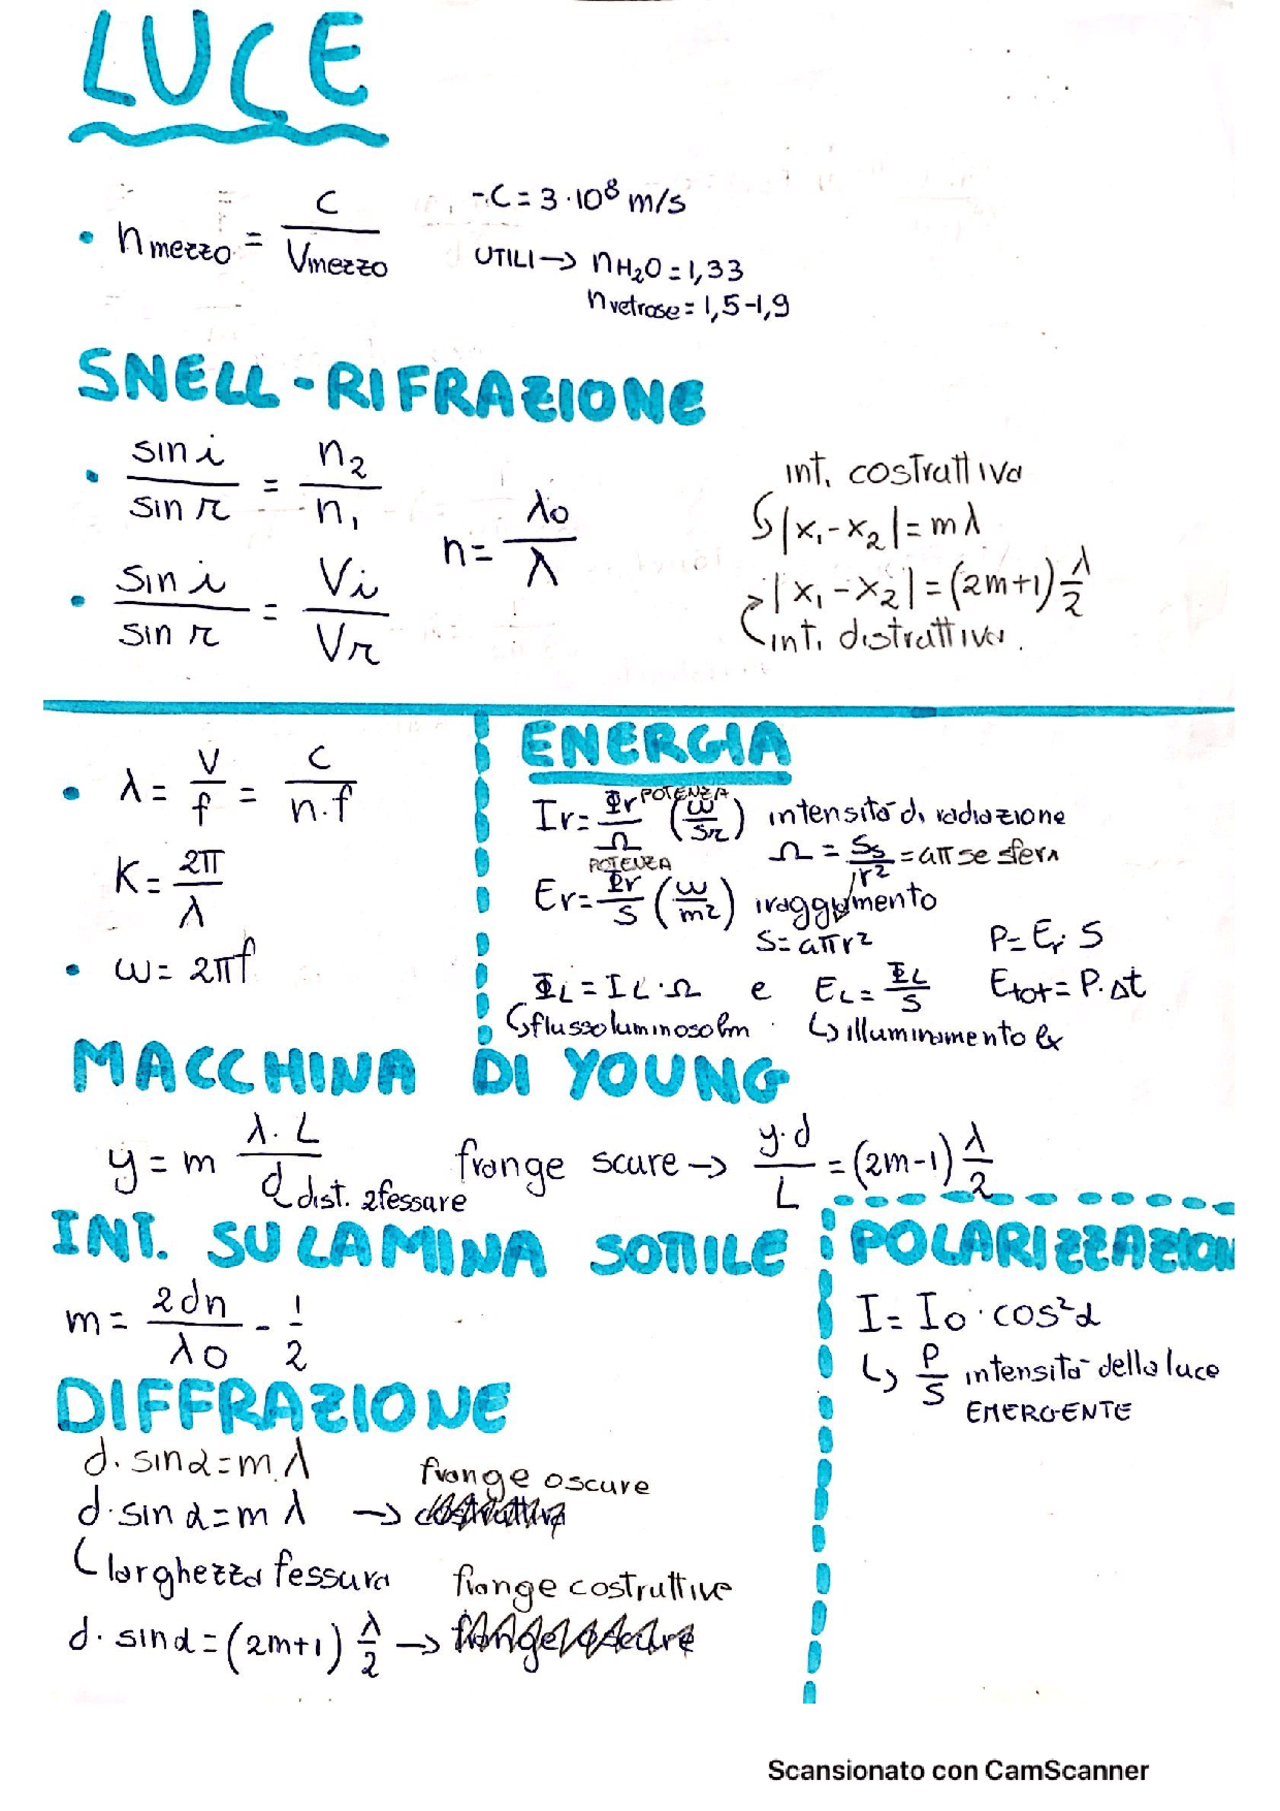 LUCE
• n mezzo = C / Vmezzo
- C = 3·10⁸ m/s
UTILI → nH₂O = 1,33
n vetrose = 1,5-1,9
SNELL - RIFRAZIONE
• sin i / sin r = n₂ / n₁
n = λ0 / λ
• sin i / sin r = Vi / Vr
int. costruttiva
↳ |x₁ - x₂| = mλ
|x₁ - x₂| = (2m+1) λ/2
int. distruttiva.
• λ = V/f = C / n·f
K = 2π / λ
• ω = 2πf
ENERGIA
POTENZA
Ir = Φr / Ω (W/sr) intensità di radiazione
Ω = Ss / r² = 4π se sfera
POTENZA
Er = Φr / S (W/m²) iraggiamento
S = 4πr²
P = Er · S
ΦL = IL · Ω e EL = ΦL / S
Etot = P · Δt
↳ flusso luminoso lm
↳ illuminamento lx
MACCHINA DI YOUNG
y = m λ·L / d
dist. 2 fessure
frange scure → y·d / L = (2m-1) λ/2
INT. SU LAMINA SOTTILE
m = 2dn / λ0 - 1/2
POLARIZZAZION
I = I0 · cos²α
↳ P/S intensità della luce
EMERGENTE
DIFFRAZIONE
d · sinα = m λ
frange oscure
d · sin α = m λ → costruttiva
larghezza fessura
frange costruttive
d · sinα = (2m+1) λ/2 → frange oscure
Scansionato con CamScanner